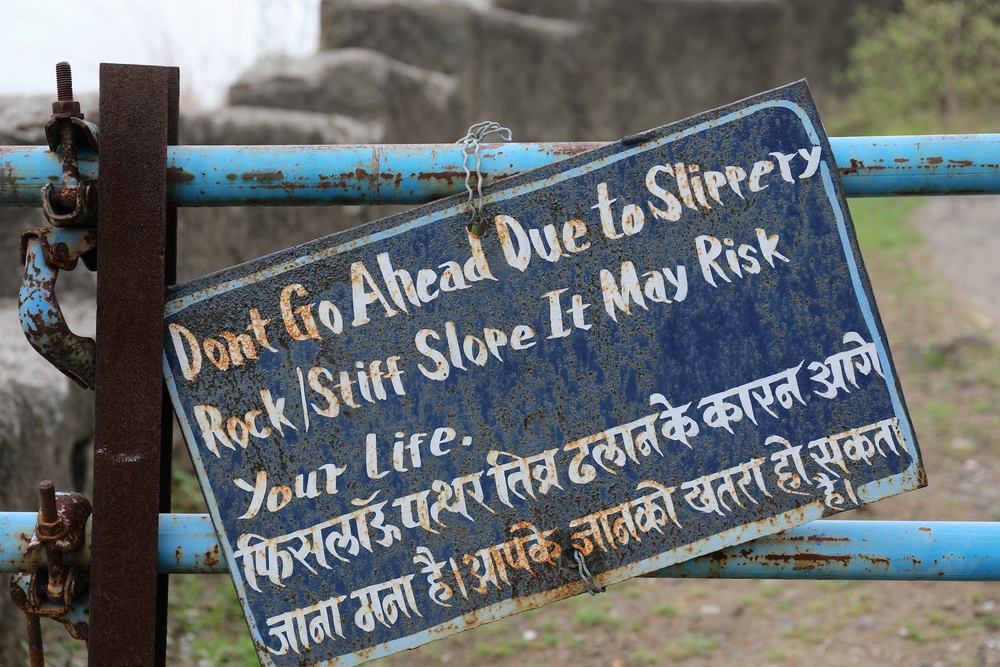 Dont Go Ahead Due to Slippery
Rock/Stiff Slope It May Risk
Your Life.
फिसलाऊँ पत्थर तिव्र ढलान के कारन आगे
जाना मना है। आपके जानको खतरा हो सकता
है।